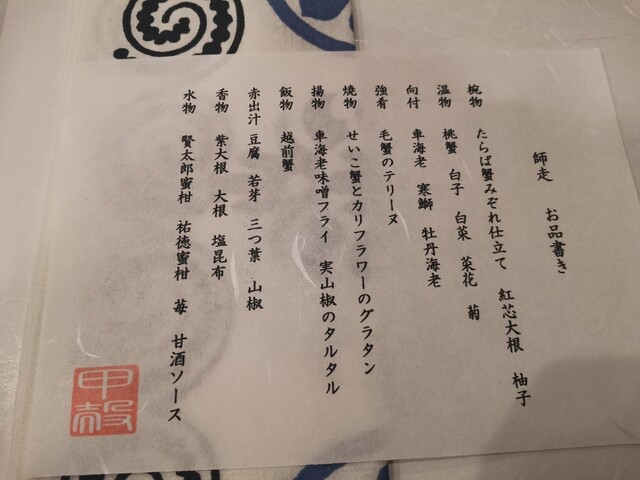 師走　お品書き
椀物　たらば蟹みぞれ仕立て　紅芯大根　柚子
温物　桃蟹　白子　白菜　菜花　菊
向付　車海老　寒鰤　牡丹海老
強肴　毛蟹のテリーヌ
焼物　せいこ蟹とカリフラワーのグラタン
揚物　車海老味噌フライ　実山椒のタルタル
飯物　越前蟹
赤出汁　豆腐　若芽　三つ葉　山椒
香物　紫大根　大根　塩昆布
水物　賢太郎蜜柑　祐徳蜜柑　苺　甘酒ソース
甲殻